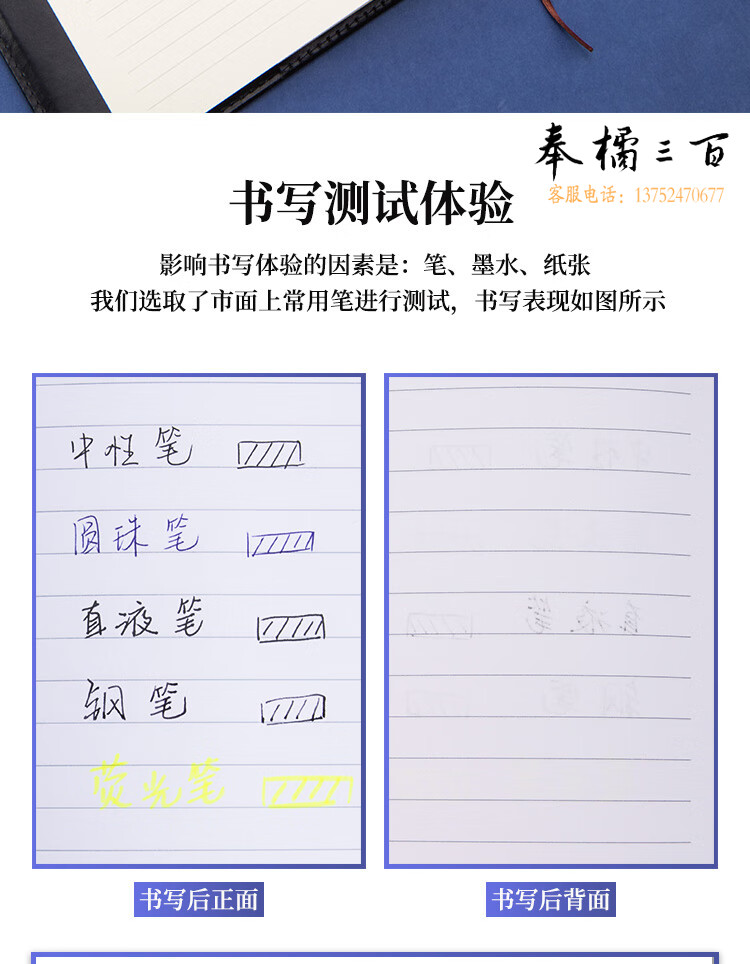 奉橘三百
客服电话：13752470677
书写测试体验
影响书写体验的因素是：笔、墨水、纸张
我们选取了市面上常用笔进行测试，书写表现如图所示
中性笔
圆珠笔
直液笔
钢笔
荧光笔
书写后正面
书写后背面